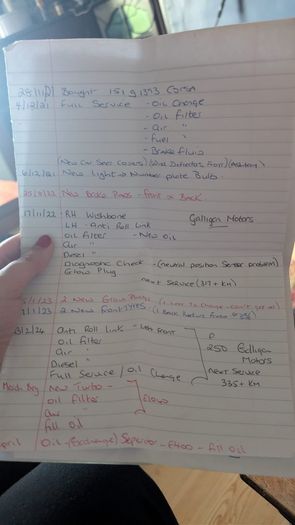 28/11/21 Bought 151 G 1373 Corsa
4/12/21 Full Service - Oil Change
- Oil Filter
- Air "
- Fuel "
- Brake Fluid
(New Car Seat Covers) (Wind Deflectors Front)
6/12/21 New Light + Number plate Bulb
New Brake Pads - Front + Back
17/11/22 RH Wishbone Galligan Motors
LH - Anti Roll Link
Oil Filter - New Oil
Air "
Diesel "
Diagnostic Check - (neutral position Sensor problem)
Glow Plug
next Service (317+ KM)
/1/23 2 New Glow Plugs
/1/23 2 New Front TYRES
/2/24 Anti Roll Link - Left Front
Oil filter
Air "
Diesel "
Full Service / Oil Change
250 Galligan
Motors
next Service
335+ KM
March New Turbo -
Oil filter
Air
fill Oil
April Oil - (Exchange) - €400 - fill Oil